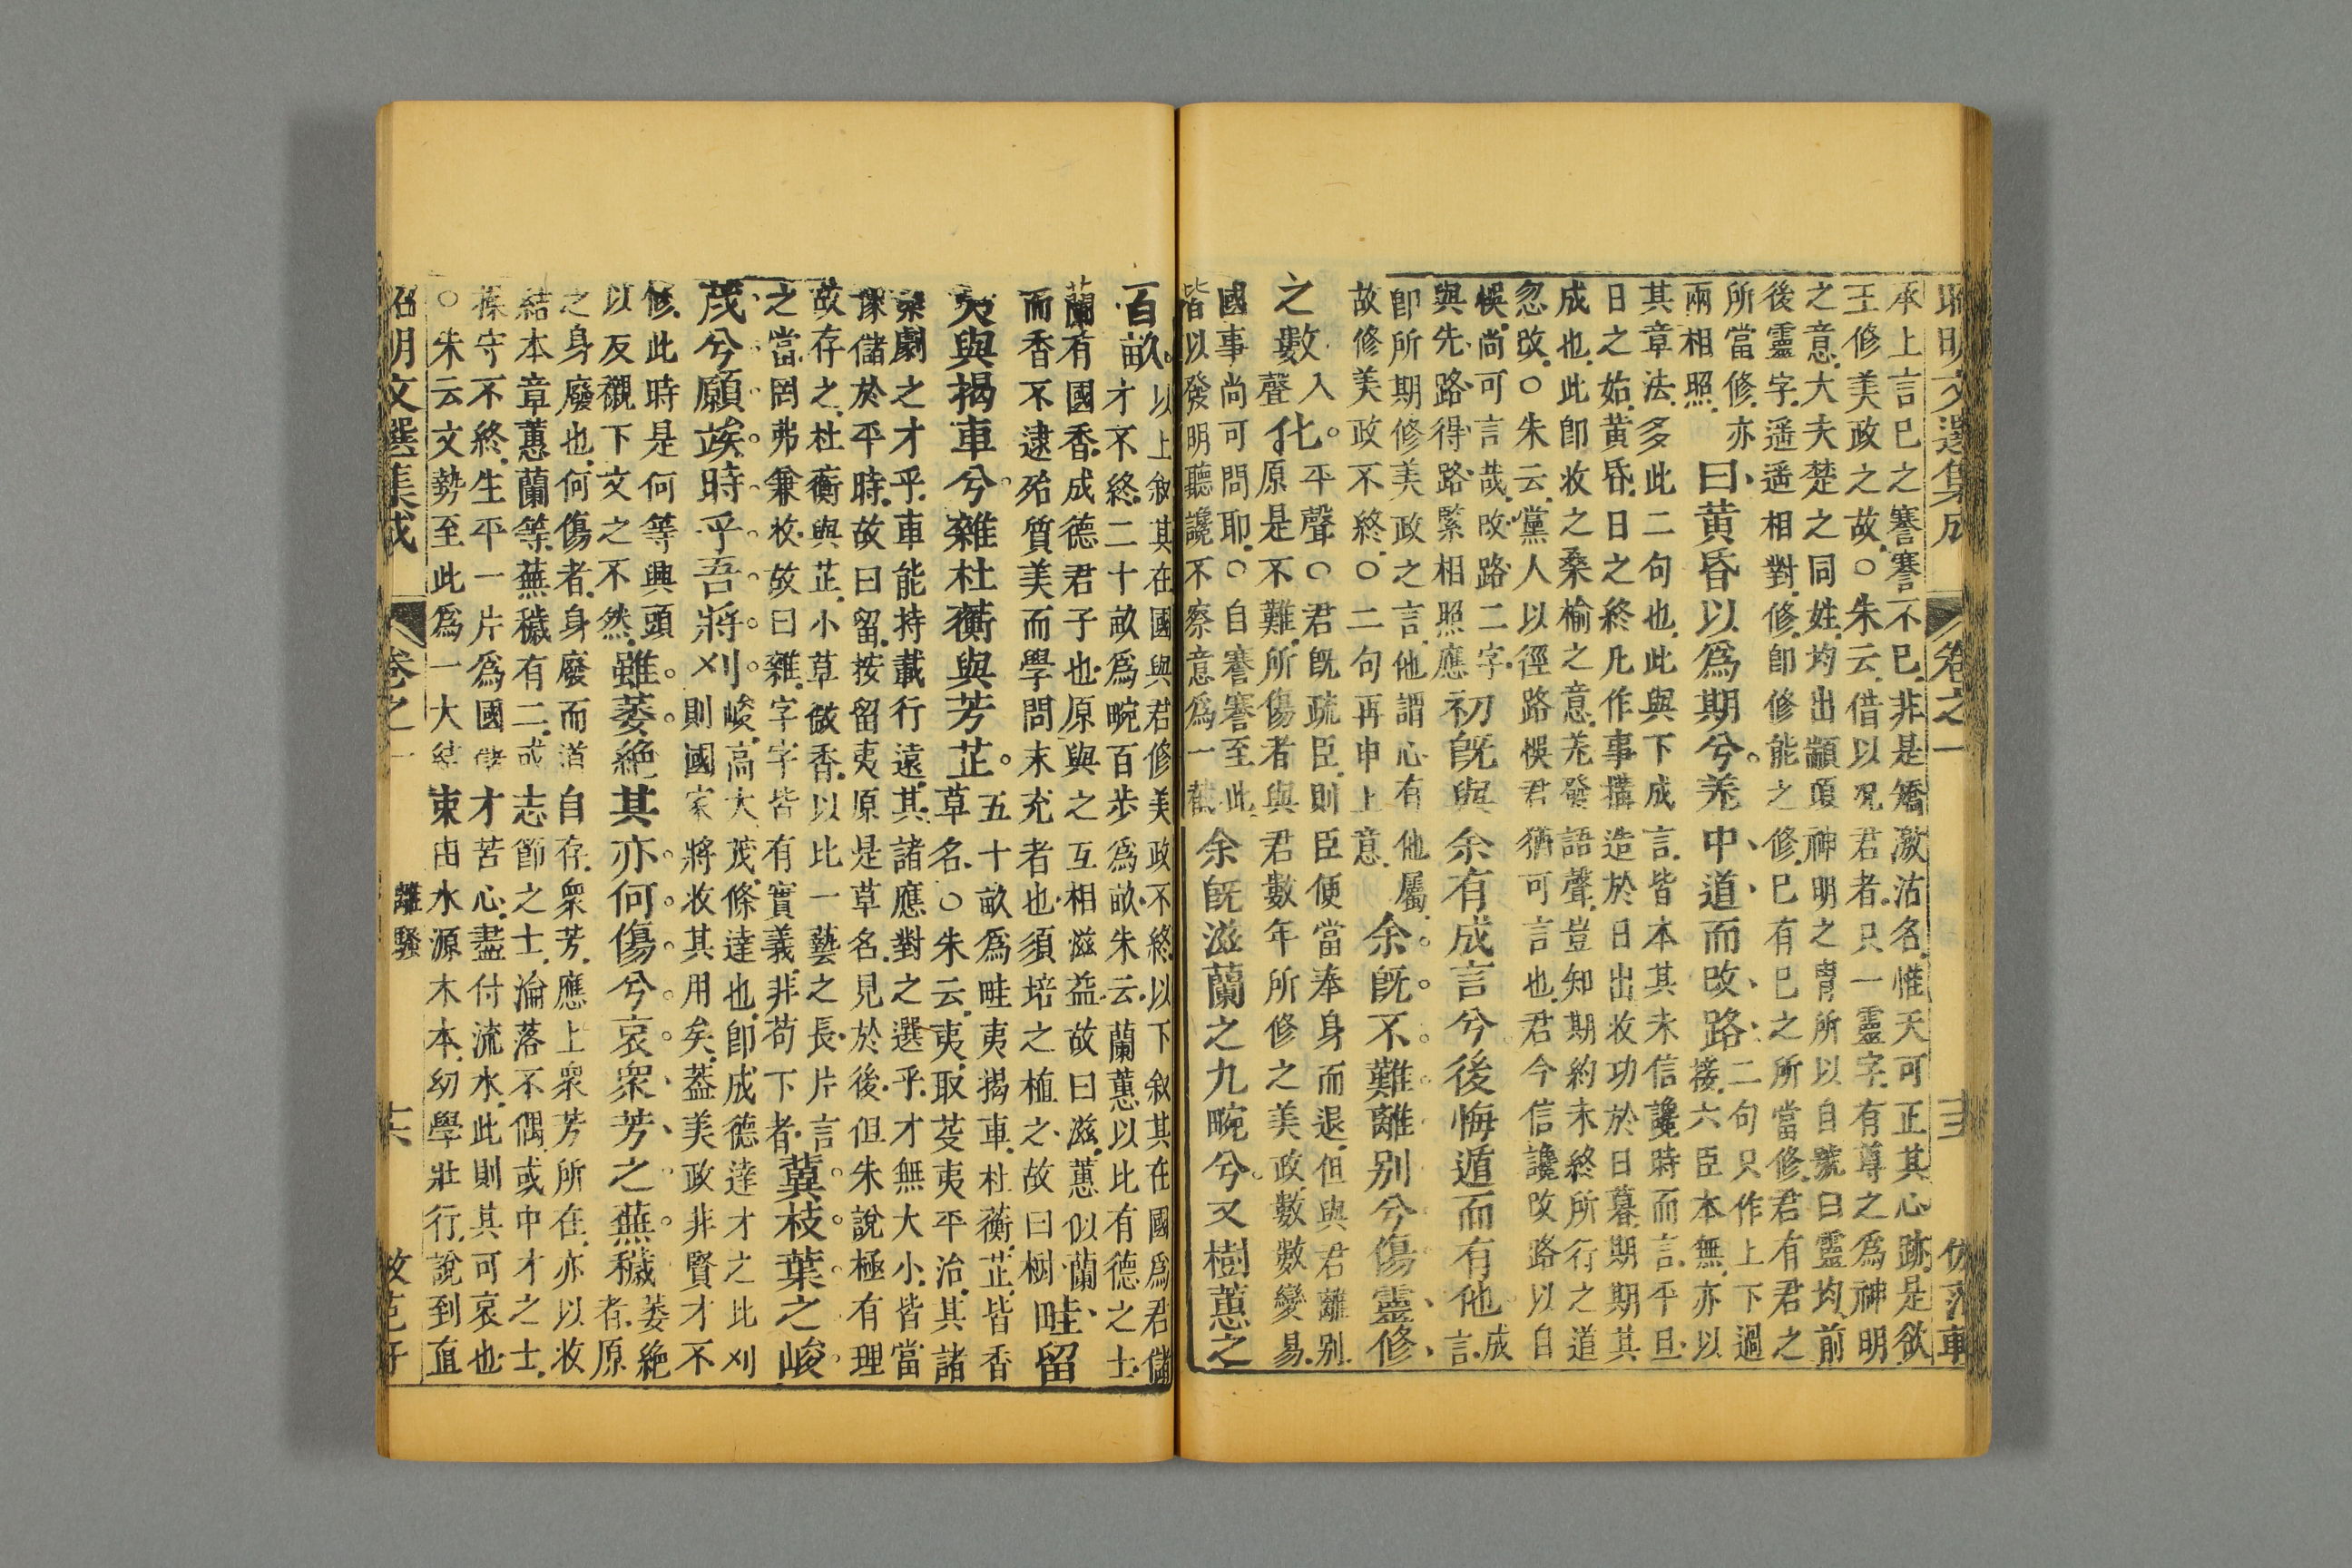 昭明文選集成　卷之一
承上言已之謇謇不已非是矯激沽名惟天可正其心跡是欲
王修美政之故○朱云借以况君者只一靈字有尊之爲神明
之意大夫楚之同姓均出顓頊神明之冑所以自號曰靈均前
後靈字遥遥相對修卽修能之修已有已之所當修君有君之
所當修亦
兩相照
曰黄昏以爲期兮羌中道而改路
二句只作上下過
接六臣本無亦以
其章法多此二句也此與下成言皆本其未信讒時而言平旦
日之始黄昏日之終凡作事搆造於日出收功於日暮期期其
成也此卽收之桑榆之意羌發語聲豈知期約未終所行之道
忽改○朱云黨人以徑路悞君猶可言也君今信讒改路以自
悞尚可言哉改路二字
與先路得路緊相照應
初旣與余有成言兮後悔遁而有他
成
言
卽所期修美政之言他謂心有他屬
故修美政不終○二句再申上意
余旣不難離別兮傷靈修
之數
入
聲
化
平聲○君旣疏臣則臣便當奉身而退但與君離別
原是不難所傷者與君數年所修之美政數數變易
國事尚可問耶○自謇謇至此
皆以發明聽讒不察意爲一截
余旣滋蘭之九畹兮又樹蕙之
百畝
以上叙其在國與君修美政不終以下叙其在國爲君儲
才不終二十畝爲畹百步爲畝朱云蘭蕙以比有德之士
蘭有國香成德君子也原與之互相滋益故曰滋蕙似蘭
而香不逮殆質美而學問未充者也須培之植之故曰樹
畦留
夷與揭車兮雜杜蘅與芳芷
五十畝爲畦夷揭車杜蘅芷皆香
草名○朱云夷取芟夷平治其諸
梁劇之才乎車能持載行遠其諸應對之選乎才無大小皆當
豫儲於平時故曰留按留夷原是草名見於後但朱說極有理
故存之杜蘅與芷小草微香以比一藝之長片言
之當罔弗兼收故曰雜字字皆有實義非苟下者
冀枝葉之峻
茂兮願竢時乎吾將刈
峻高大茂條達也卽成德達才之比刈
則國家將收其用矣蓋美政非賢才不
修此時是何等興頭
以反襯下文之不然
雖萎絶其亦何傷兮哀衆芳之蕪穢
萎絶
者原
之身廢也何傷者身廢而道自存衆芳應上衆芳所在亦以收
結本章蕙蘭等蕪穢有二或志節之士淪落不偶或中才之士
操守不終生平一片爲國儲才苦心盡付流水此則其可哀也
○朱云文勢至此爲一大結束由水源木本幼學壯行說到直
昭明文選集成　卷之一　離騷